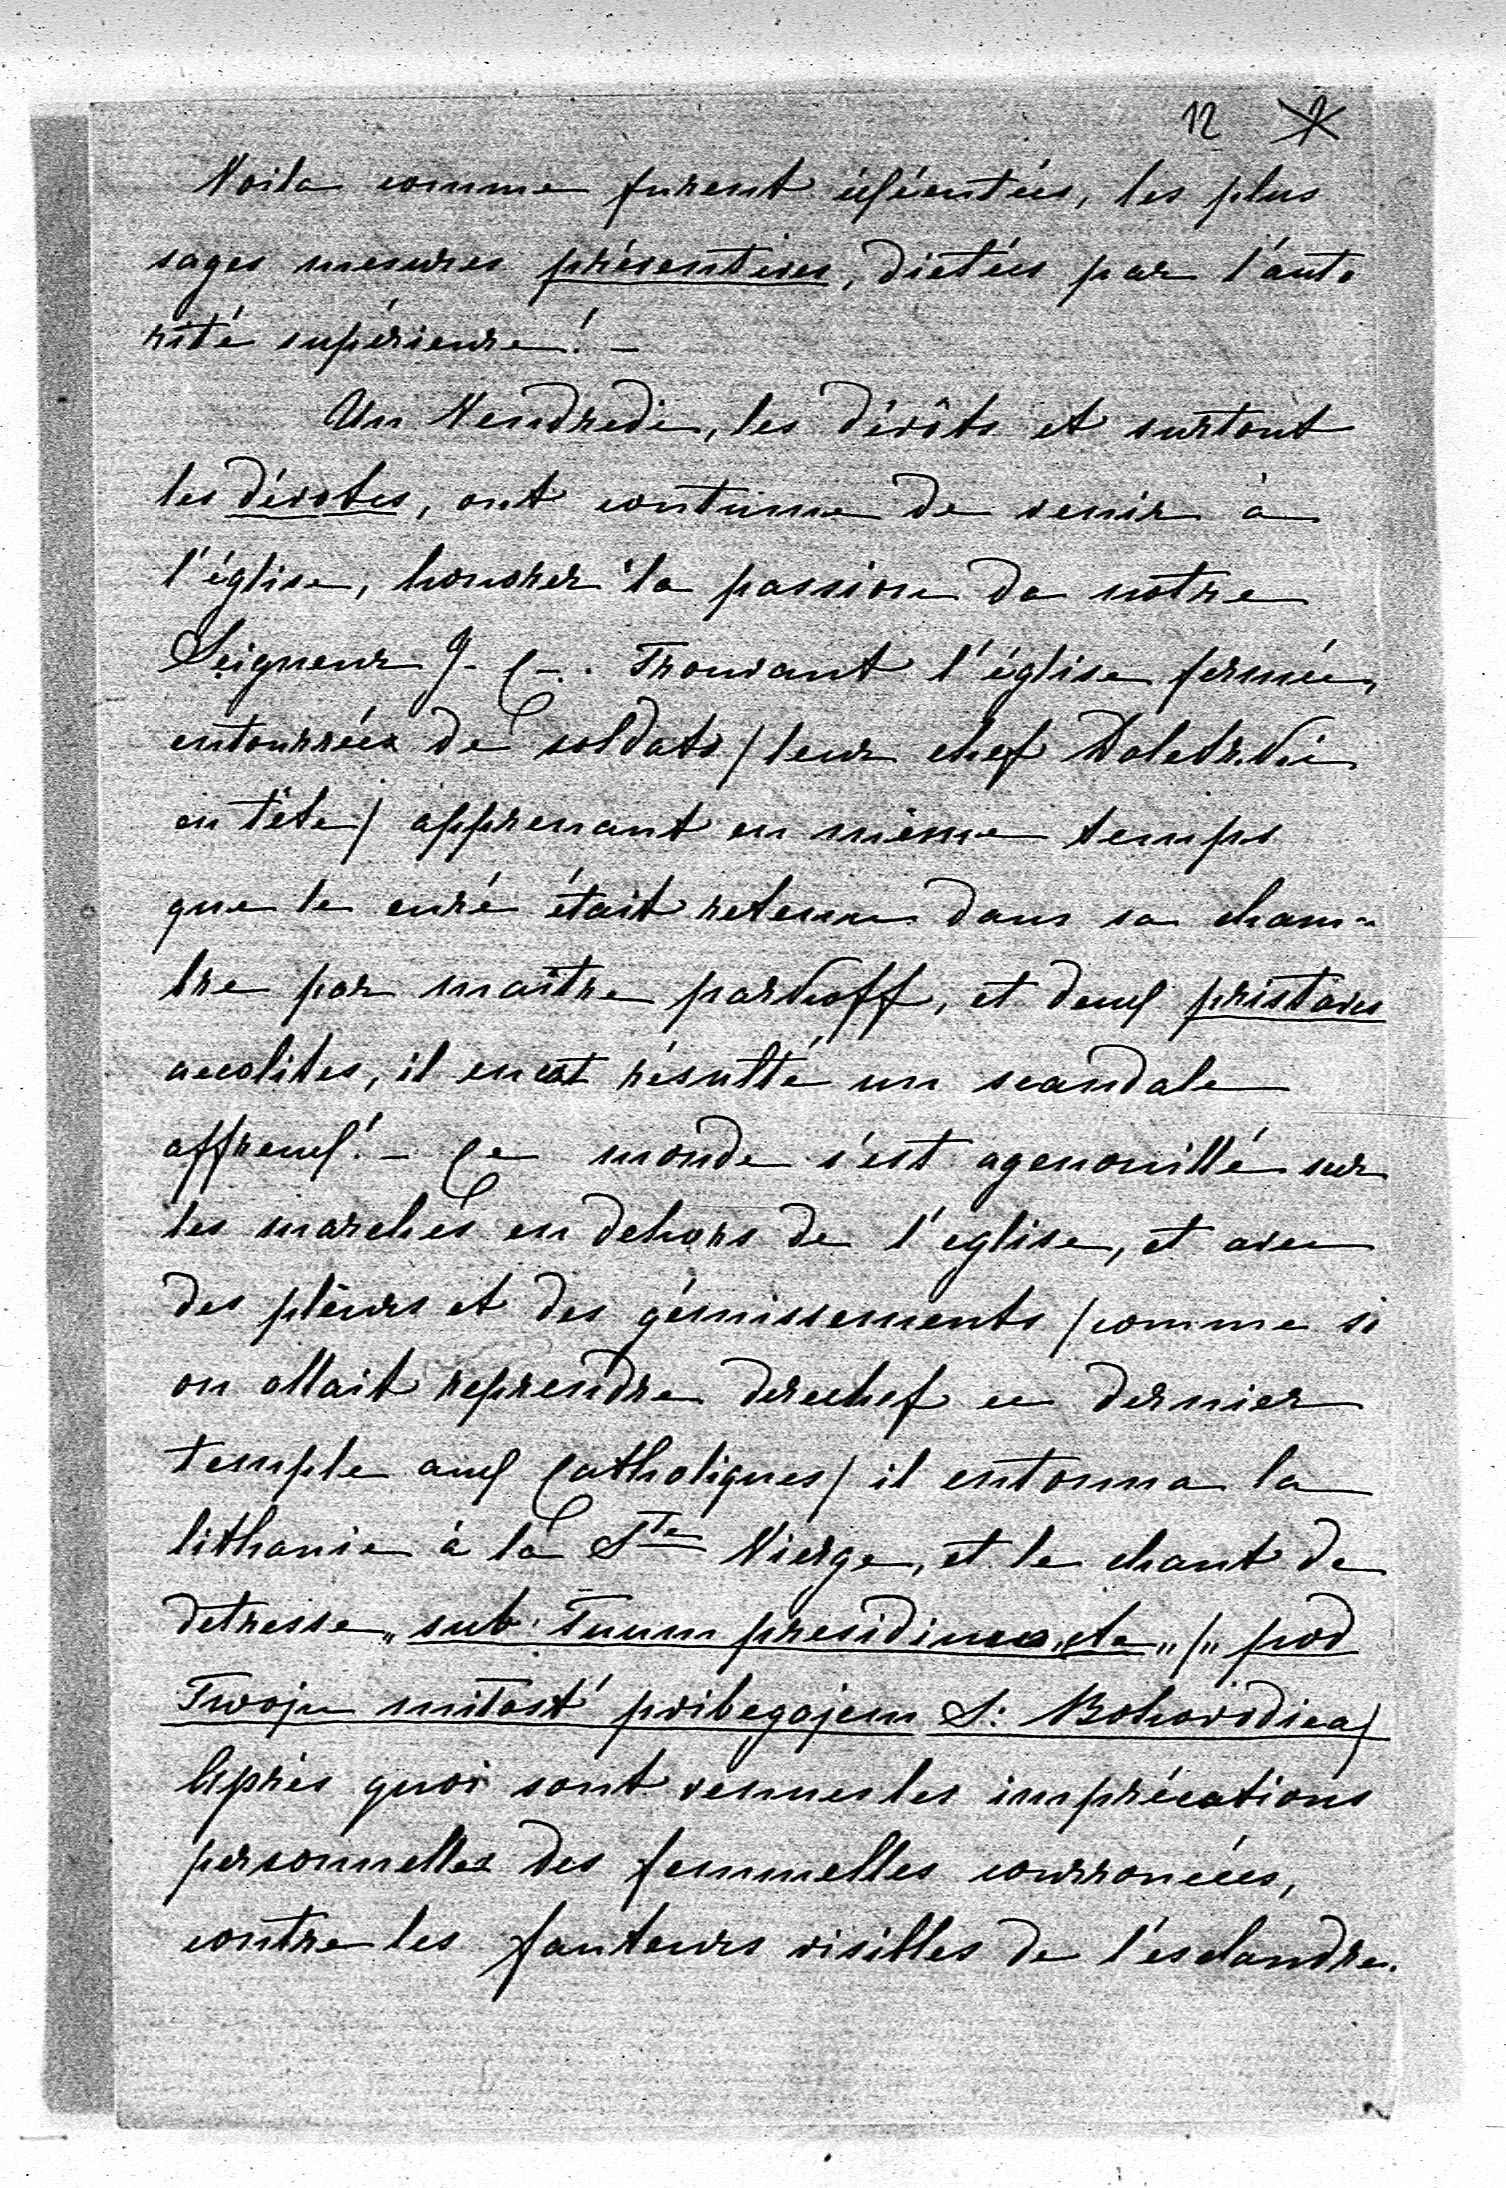 12
Voila comme furent éxécutées, les plus
sages mesures préventives, dictées par l'auto
rité supérieure! –
Un Vendredi, les dévôts et surtout
les dévotes, ont coutume de venir à
l'église, honorer la passion de notre
Seigneur J. C. Trouvant l'église fermée,
entourrée de soldats / leur chef
en tête / apprenant en même temps
que le curé était retenu dans sa cham-
bre par maître parkoff, et deux pristaves
accolites, il en est résulté un scandale
affreux! – Ce monde s'est agenouillé sur
les marches en dehors de l'eglise, et avec
des plèurs et des gémissements / comme si
on allait reprendre derechef ce dernier
temple aux Catholiques / il entonna la
lithanie à la Ste Vierge, et le chant de
detresse „sub Tuum presidium etc" / „pod
Twoju miłost' pribegajem S: Bohorodica /
Après quoi sont venues les imprécations
personnelles des femmelles courroncées,
contre les fauteurs visibles de l'esclandre.